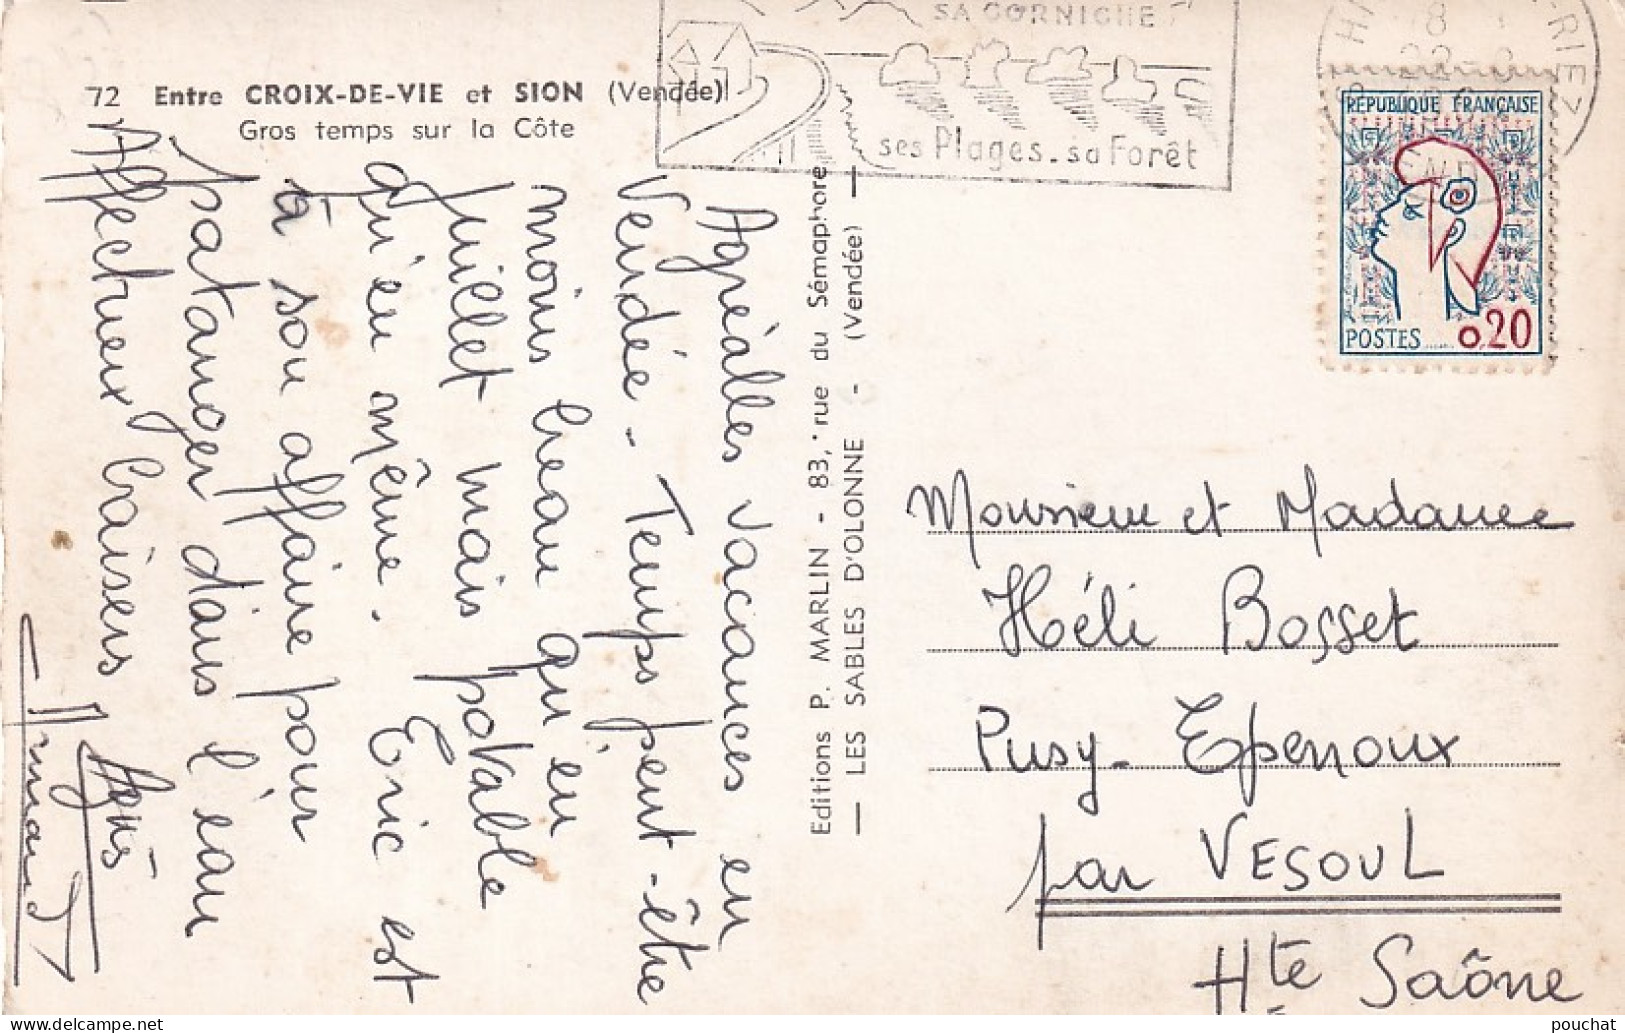 72 Entre CROIX-DE-VIE et SION (Vendée)
Gros temps sur la Côte
SA CORNICHE
ses Plages - sa Forêt
8
22
RIEZ
RÉPUBLIQUE FRANÇAISE
POSTES 0,20
Agréables vacances en
Vendée - Temps peut-être
moins beau qu'en
juillet mais potable
qu'en même. Eric est
à son affaire pour
patauger dans l'eau
Affectueux baisers
Editions P. MARLIN - 83, rue du Sémaphore
— LES SABLES D'OLONNE - (Vendée) —
Monsieur et Madame
Héli Bosset
Pusy - Epenoux
par VESOUL
Hte Saône
pouchat